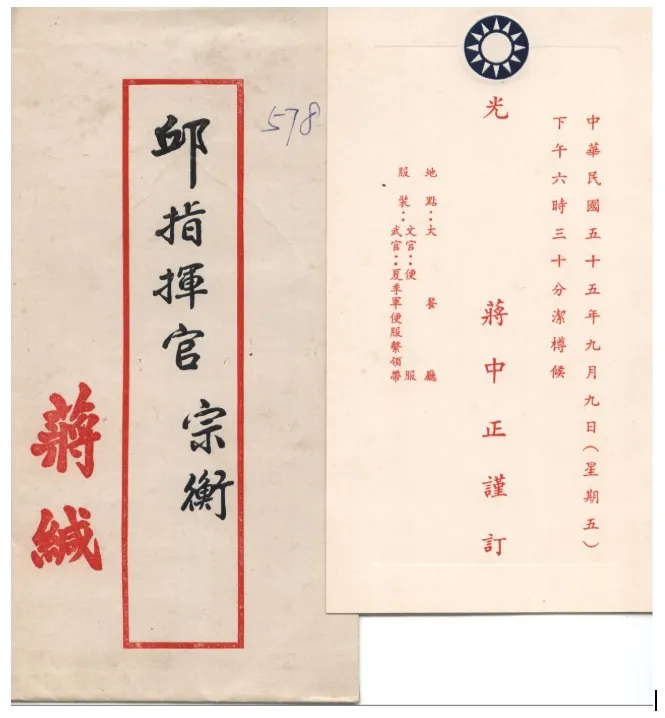 邱指揮官 宗衡
蔣緘
578
中華民國五十五年九月九日(星期五)
下午六時三十分潔樽候
光
蔣中正謹訂
地點:大餐廳
服裝:文官:便服
武官:夏季軍便服繫領帶